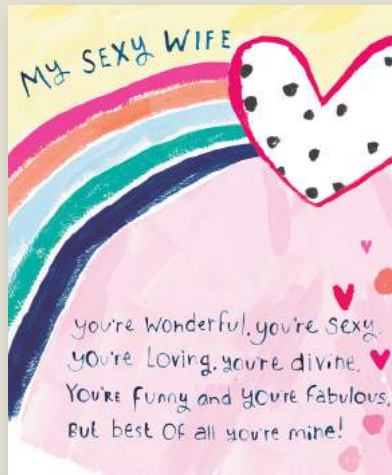 MY SEXY WIFE
you're Wonderful, you're sexy,
you're Loving, you're divine,
You're Funny and you're Fabulous,
But best of all you're mine!